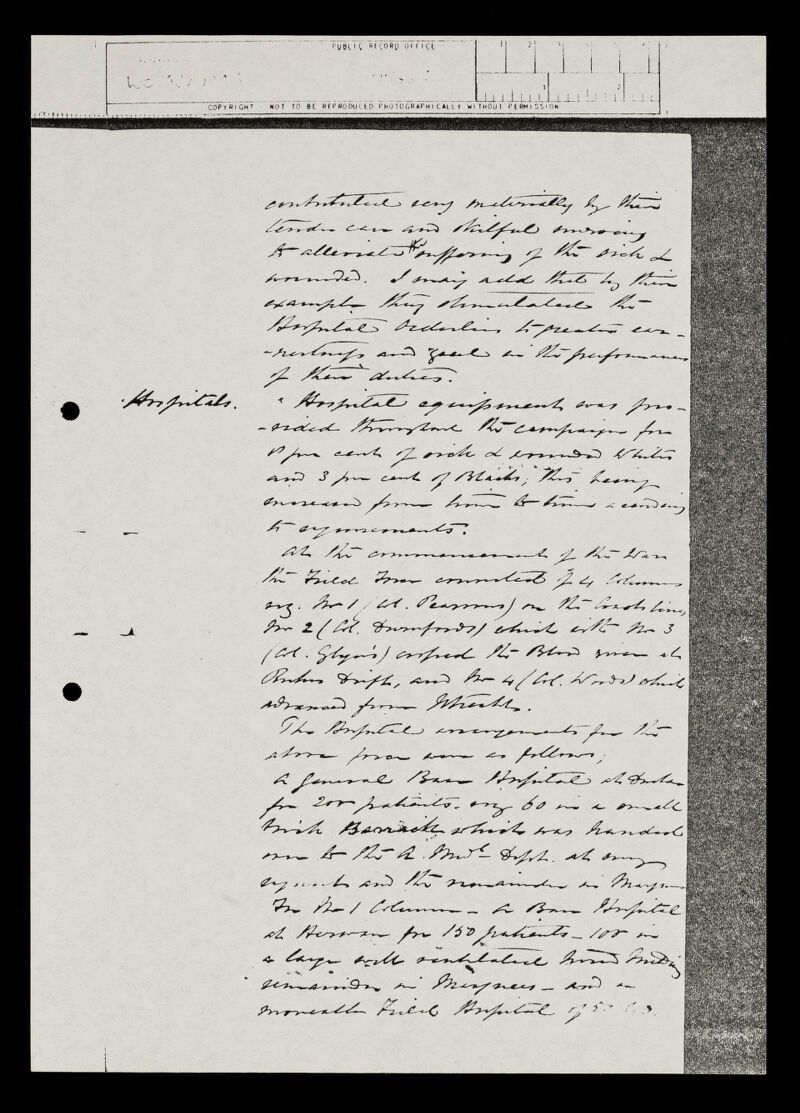 PUBLIC RECORD OFFICE
1 2
1 2
COPYRIGHT - NOT TO BE REPRODUCED PHOTOGRAPHICALLY WITHOUT PERMISSION
contributed very materially by their
tender care and skilful nursing
to alleviate the suffering of the sick &
wounded. I may add that by their
example they stimulated the
Hospital Orderlies to greater ear-
-nestness and zeal in the performance
of their duties.
Hospitals.
" Hospital equipment was pro-
-vided throughout the campaign for
8 per cent of sick & wounded Whites
and 3 per cent of Blacks; this being
increased from time to time according
to requirements.
At the commencement of the War
the Field Force consisted of 4 Columns
viz. No 1 (Col. Pearsons) on the Coast line,
No 2 (Col. Durnfords) which with No 3
(Col. Glyn's) crossed the river at
Rorkes Drift, and No 4 (Col. Woods) which
advanced from Utrecht.
The Hospital arrangements for the
above force were as follows;
A General Base Hospital at Durban
for 200 patients. viz 60 in a small
brick Barrack which was handed
over to the A. Med. Dept. at my
request and the remainder in Marquees
For No 1 Column - A Base Hospital
at Herwen for 150 patients - 100 in
a large well ventilated
remainder in Marquees - and a
moveable Field Hospital of